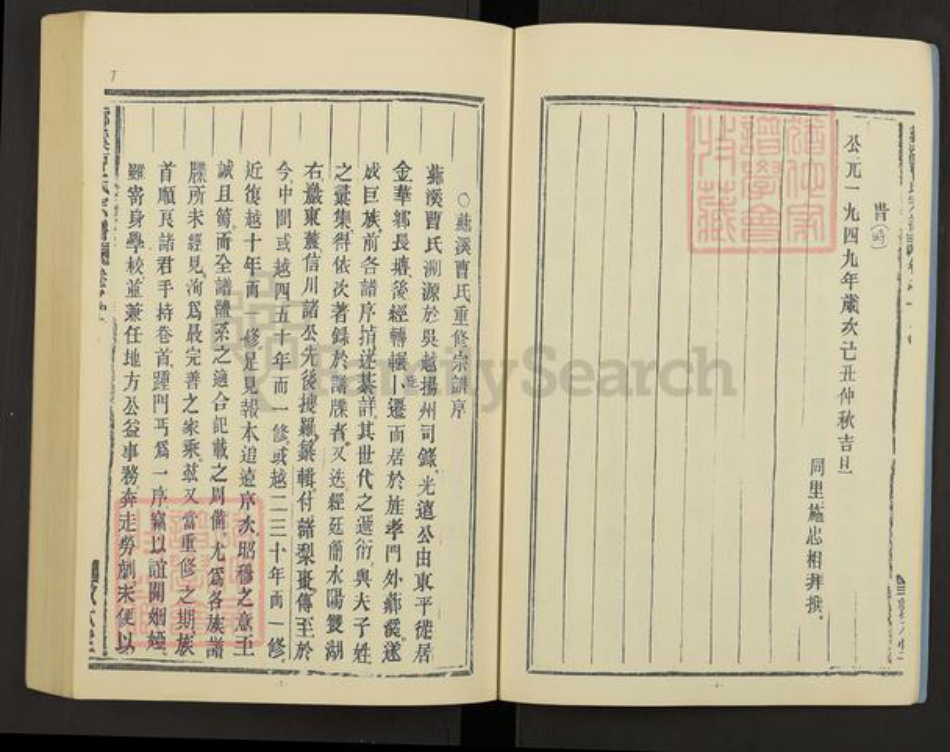 時(時)
公元一九四九年歲次己丑仲秋吉旦
同里施忠相拜撰
○蘇溪曹氏重修宗譜序
蘇溪曹氏溯源於吳越揚州司錄光遠公由東平徙居
金華鄉長塘後經轉輾小遷而居於旌孝門外蘇溪遂
成巨族前各譜序描述綦詳其世代之遞衍與夫子姓
之彙集得依次著錄於譜牒者又迭經廷蘭水陽雙湖
右巖東麓信川諸公先後搜羅纂輯付諸梨棗傳至於
今中間或越四五十年而一修或越二三十年而一修
近復越十年而 修足見報本追遠序次昭穆之意至
誠且篤而全譜體系之適合記載之周備尤爲各族譜
牒所未經見洵爲最完善之家乘茲又當重修之期族
首順良諸君手持卷首踵門丐爲一序竊以誼關姻婭
雖寄身學校並兼任地方公益事務奔走勞劇未便以
FamilySearch